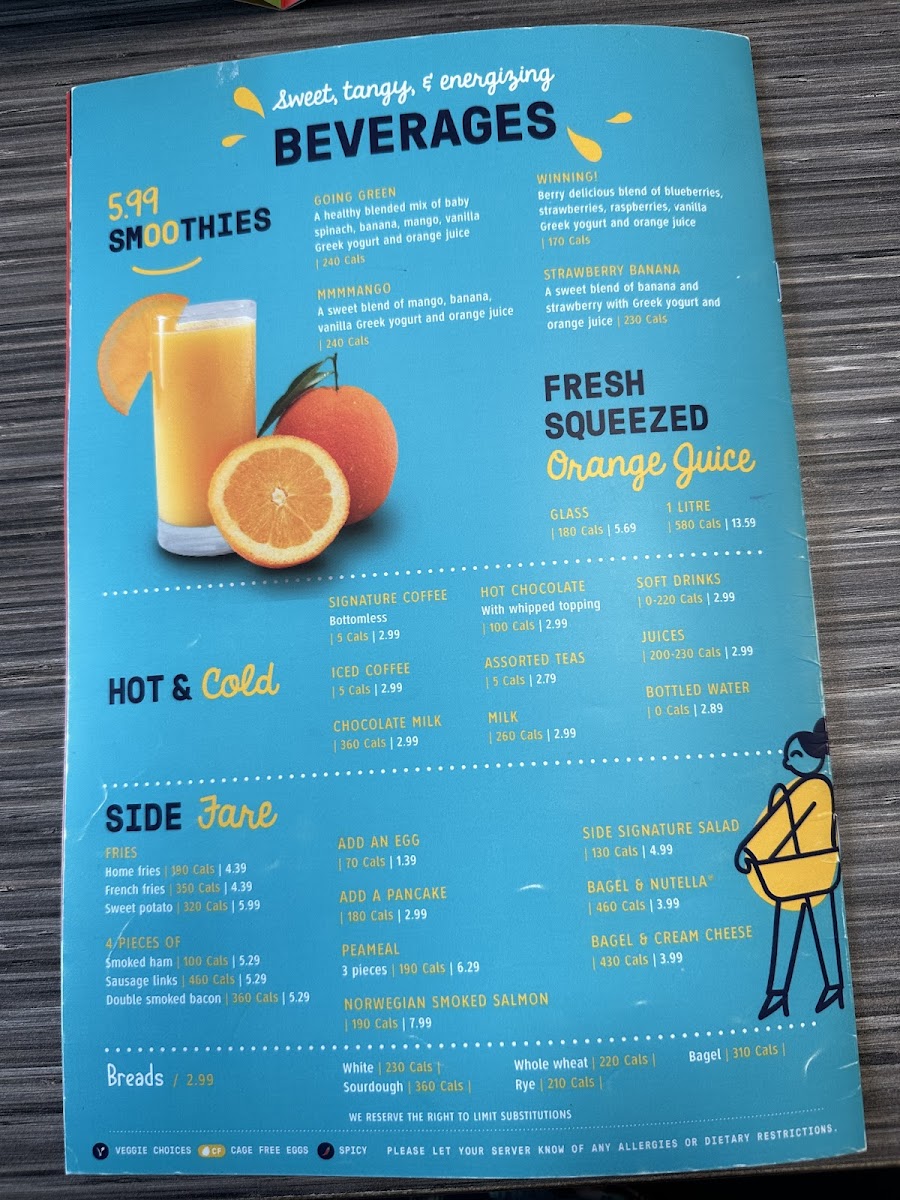 Sweet, tangy, & energizing
BEVERAGES
5.99
SMOOTHIES
GOING GREEN
A healthy blended mix of baby
spinach, banana, mango, vanilla
Greek yogurt and orange juice
| 240 Cals
MMMMANGO
A sweet blend of mango, banana,
vanilla Greek yogurt and orange juice
| 240 Cals
WINNING!
Berry delicious blend of blueberries,
strawberries, raspberries, vanilla
Greek yogurt and orange juice
| 170 Cals
STRAWBERRY BANANA
A sweet blend of banana and
strawberry with Greek yogurt and
orange juice | 230 Cals
FRESH
SQUEEZED
Orange Juice
GLASS
| 180 Cals | 5.69
1 LITRE
| 580 Cals | 13.59
HOT & Cold
SIGNATURE COFFEE
Bottomless
| 5 Cals | 2.99
ICED COFFEE
| 5 Cals | 2.99
CHOCOLATE MILK
| 360 Cals | 2.99
HOT CHOCOLATE
With whipped topping
| 100 Cals | 2.99
ASSORTED TEAS
| 5 Cals | 2.79
MILK
| 260 Cals | 2.99
SOFT DRINKS
| 0-220 Cals | 2.99
JUICES
| 200-230 Cals | 2.99
BOTTLED WATER
| 0 Cals | 2.89
SIDE Fare
FRIES
Home fries | 190 Cals | 4.39
French fries | 350 Cals | 4.39
Sweet potato | 320 Cals | 5.99
4 PIECES OF
Smoked ham | 100 Cals | 5.29
Sausage links | 460 Cals | 5.29
Double smoked bacon | 360 Cals | 5.29
ADD AN EGG
| 70 Cals | 1.39
ADD A PANCAKE
| 180 Cals | 2.99
PEAMEAL
3 pieces | 190 Cals | 6.29
NORWEGIAN SMOKED SALMON
| 190 Cals | 7.99
SIDE SIGNATURE SALAD
| 130 Cals | 4.99
BAGEL & NUTELLA®
| 460 Cals | 3.99
BAGEL & CREAM CHEESE
| 430 Cals | 3.99
Breads / 2.99
White | 230 Cals |
Sourdough | 360 Cals |
Whole wheat | 220 Cals |
Rye | 210 Cals |
Bagel | 310 Cals |
WE RESERVE THE RIGHT TO LIMIT SUBSTITUTIONS
V VEGGIE CHOICES CF CAGE FREE EGGS SPICY PLEASE LET YOUR SERVER KNOW OF ANY ALLERGIES OR DIETARY RESTRICTIONS.